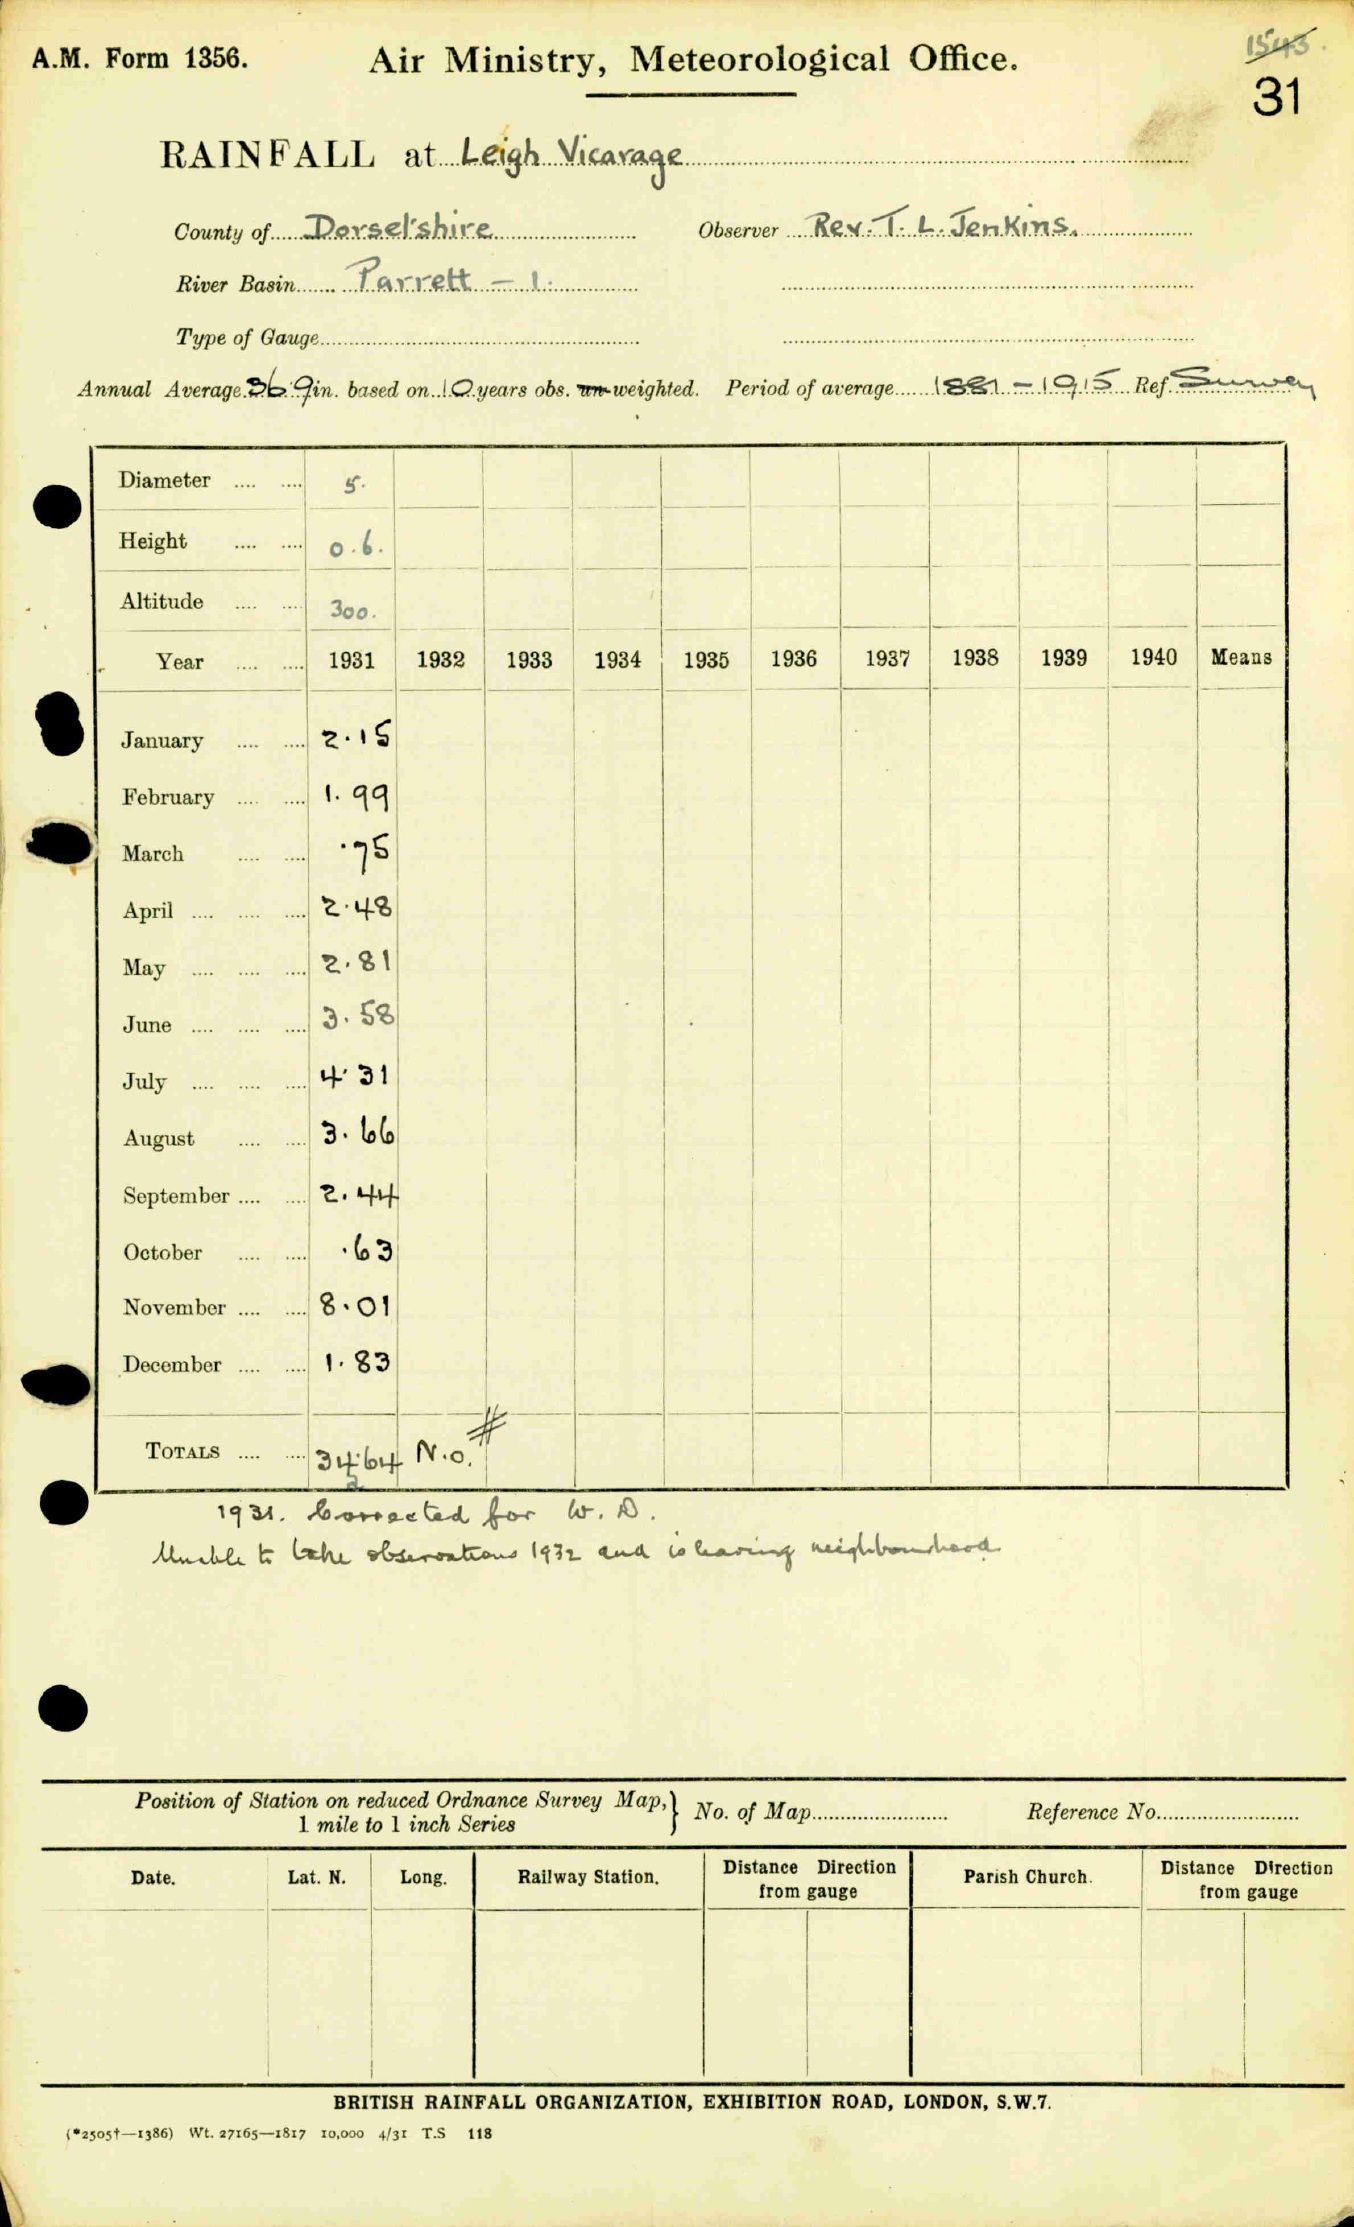 A.M. Form 1356. Air Ministry, Meteorological Office. 1543.
31
RAINFALL at Leigh Vicarage
County of Dorsetshire Observer Rev. T. L. Jenkins.
River Basin Parrett - 1.
Type of Gauge
Annual Average 36.9 in. based on 10 years obs. un-weighted. Period of average 1881-1915 Ref. Survey
Diameter .... .... 5.
Height .... .... 0.6.
Altitude .... .... 300.
Year .... .... 1931 1932 1933 1934 1935 1936 1937 1938 1939 1940 Means
January .... .... 2.15
February .... .... 1.99
March .... .... .75
April .... .... .... 2.48
May .... .... .... 2.81
June .... .... .... 3.58
July .... .... .... 4.31
August .... .... 3.66
September .... .... 2.44
October .... .... .63
November .... .... 8.01
December .... .... 1.83
TOTALS .... .... 34.64 N.o. #
1931. Corrected for W. D.
Unable to take observations 1932 and is leaving neighbourhood
Position of Station on reduced Ordnance Survey Map, } No. of Map Reference No.
1 mile to 1 inch Series
Date. Lat. N. Long. Railway Station. Distance Direction from gauge Parish Church. Distance Direction from gauge
BRITISH RAINFALL ORGANIZATION, EXHIBITION ROAD, LONDON, S.W.7.
(*2505†—1386) Wt. 27165—1817 10,000 4/31 T.S 118